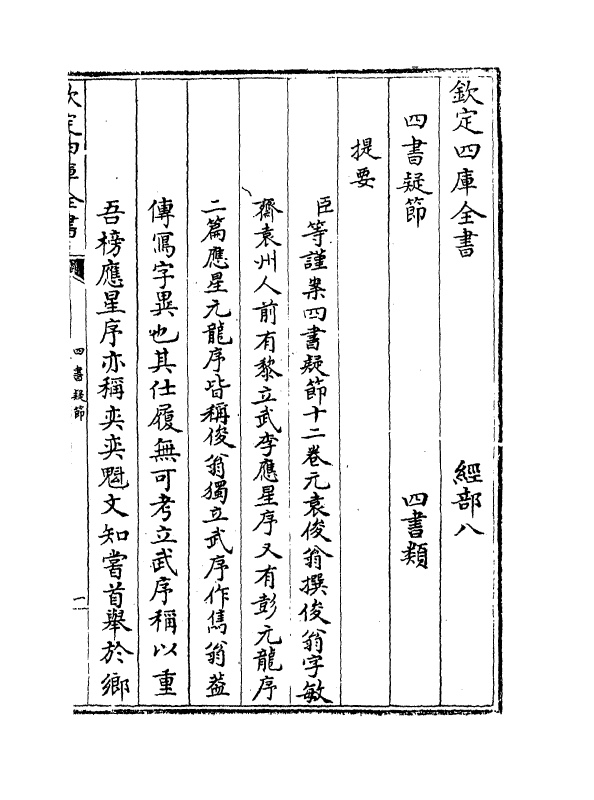 欽定四庫全書　經部八
四書疑節　四書類
提要
臣等謹案四書疑節十二卷元袁俊翁撰俊翁字敏
齋袁州人前有黎立武李應星序又有彭元龍序
二篇應星元龍序皆稱俊翁獨立武序作雋翁葢
傳寫字異也其仕履無可考立武序稱以重
吾榜應星序亦稱奕奕魁文知嘗首舉於鄉
欽定四庫全書
四書疑節
一